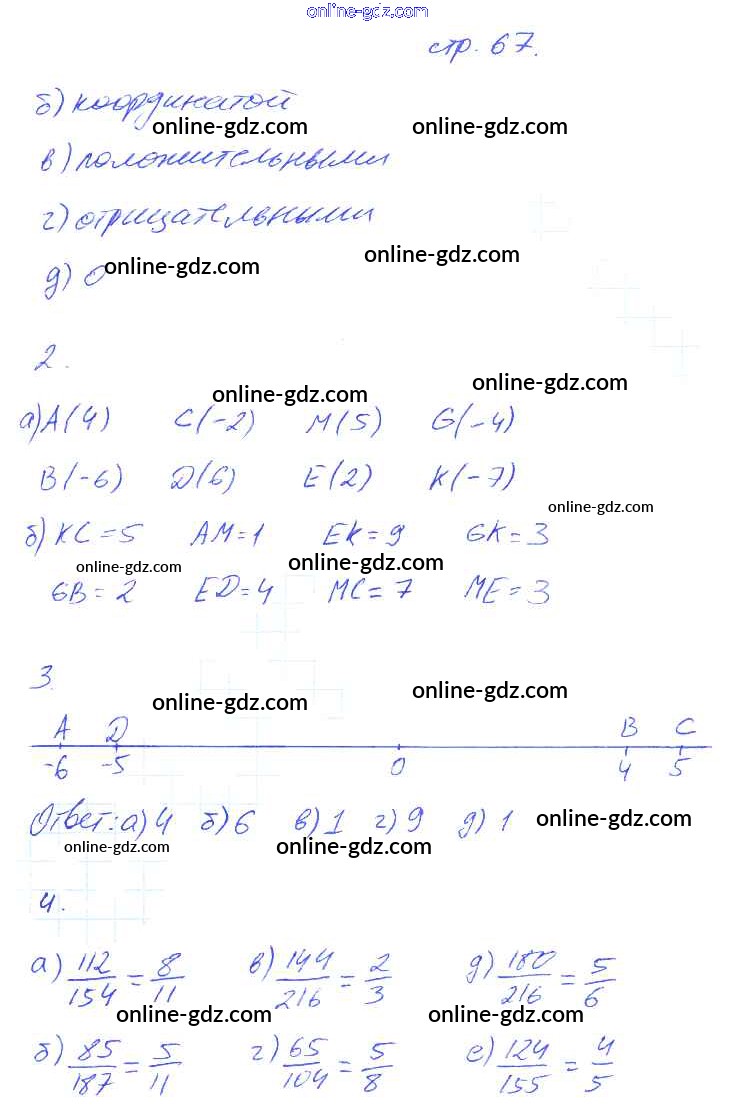 online-gdz.com
стр. 67.
б) координатой
online-gdz.com online-gdz.com
в) положительными
г) отрицательными
online-gdz.com
д) 0 online-gdz.com
2.
online-gdz.com online-gdz.com
а) A(4) C(-2) M(5) G(-4)
B(-6) D(6) E(2) K(-7)
online-gdz.com
б) KC = 5 AM = 1 EK = 9 GK = 3
online-gdz.com online-gdz.com
GB = 2 ED = 4 MC = 7 ME = 3
3.
online-gdz.com online-gdz.com
A D B C
-6 -5 0 4 5
Ответ: а) 4 б) 6 в) 1 г) 9 д) 1 online-gdz.com
online-gdz.com online-gdz.com
4.
а) 112/154 = 8/11 в) 144/216 = 2/3 д) 180/216 = 5/6
online-gdz.com online-gdz.com
б) 85/187 = 5/11 г) 65/104 = 5/8 е) 124/155 = 4/5